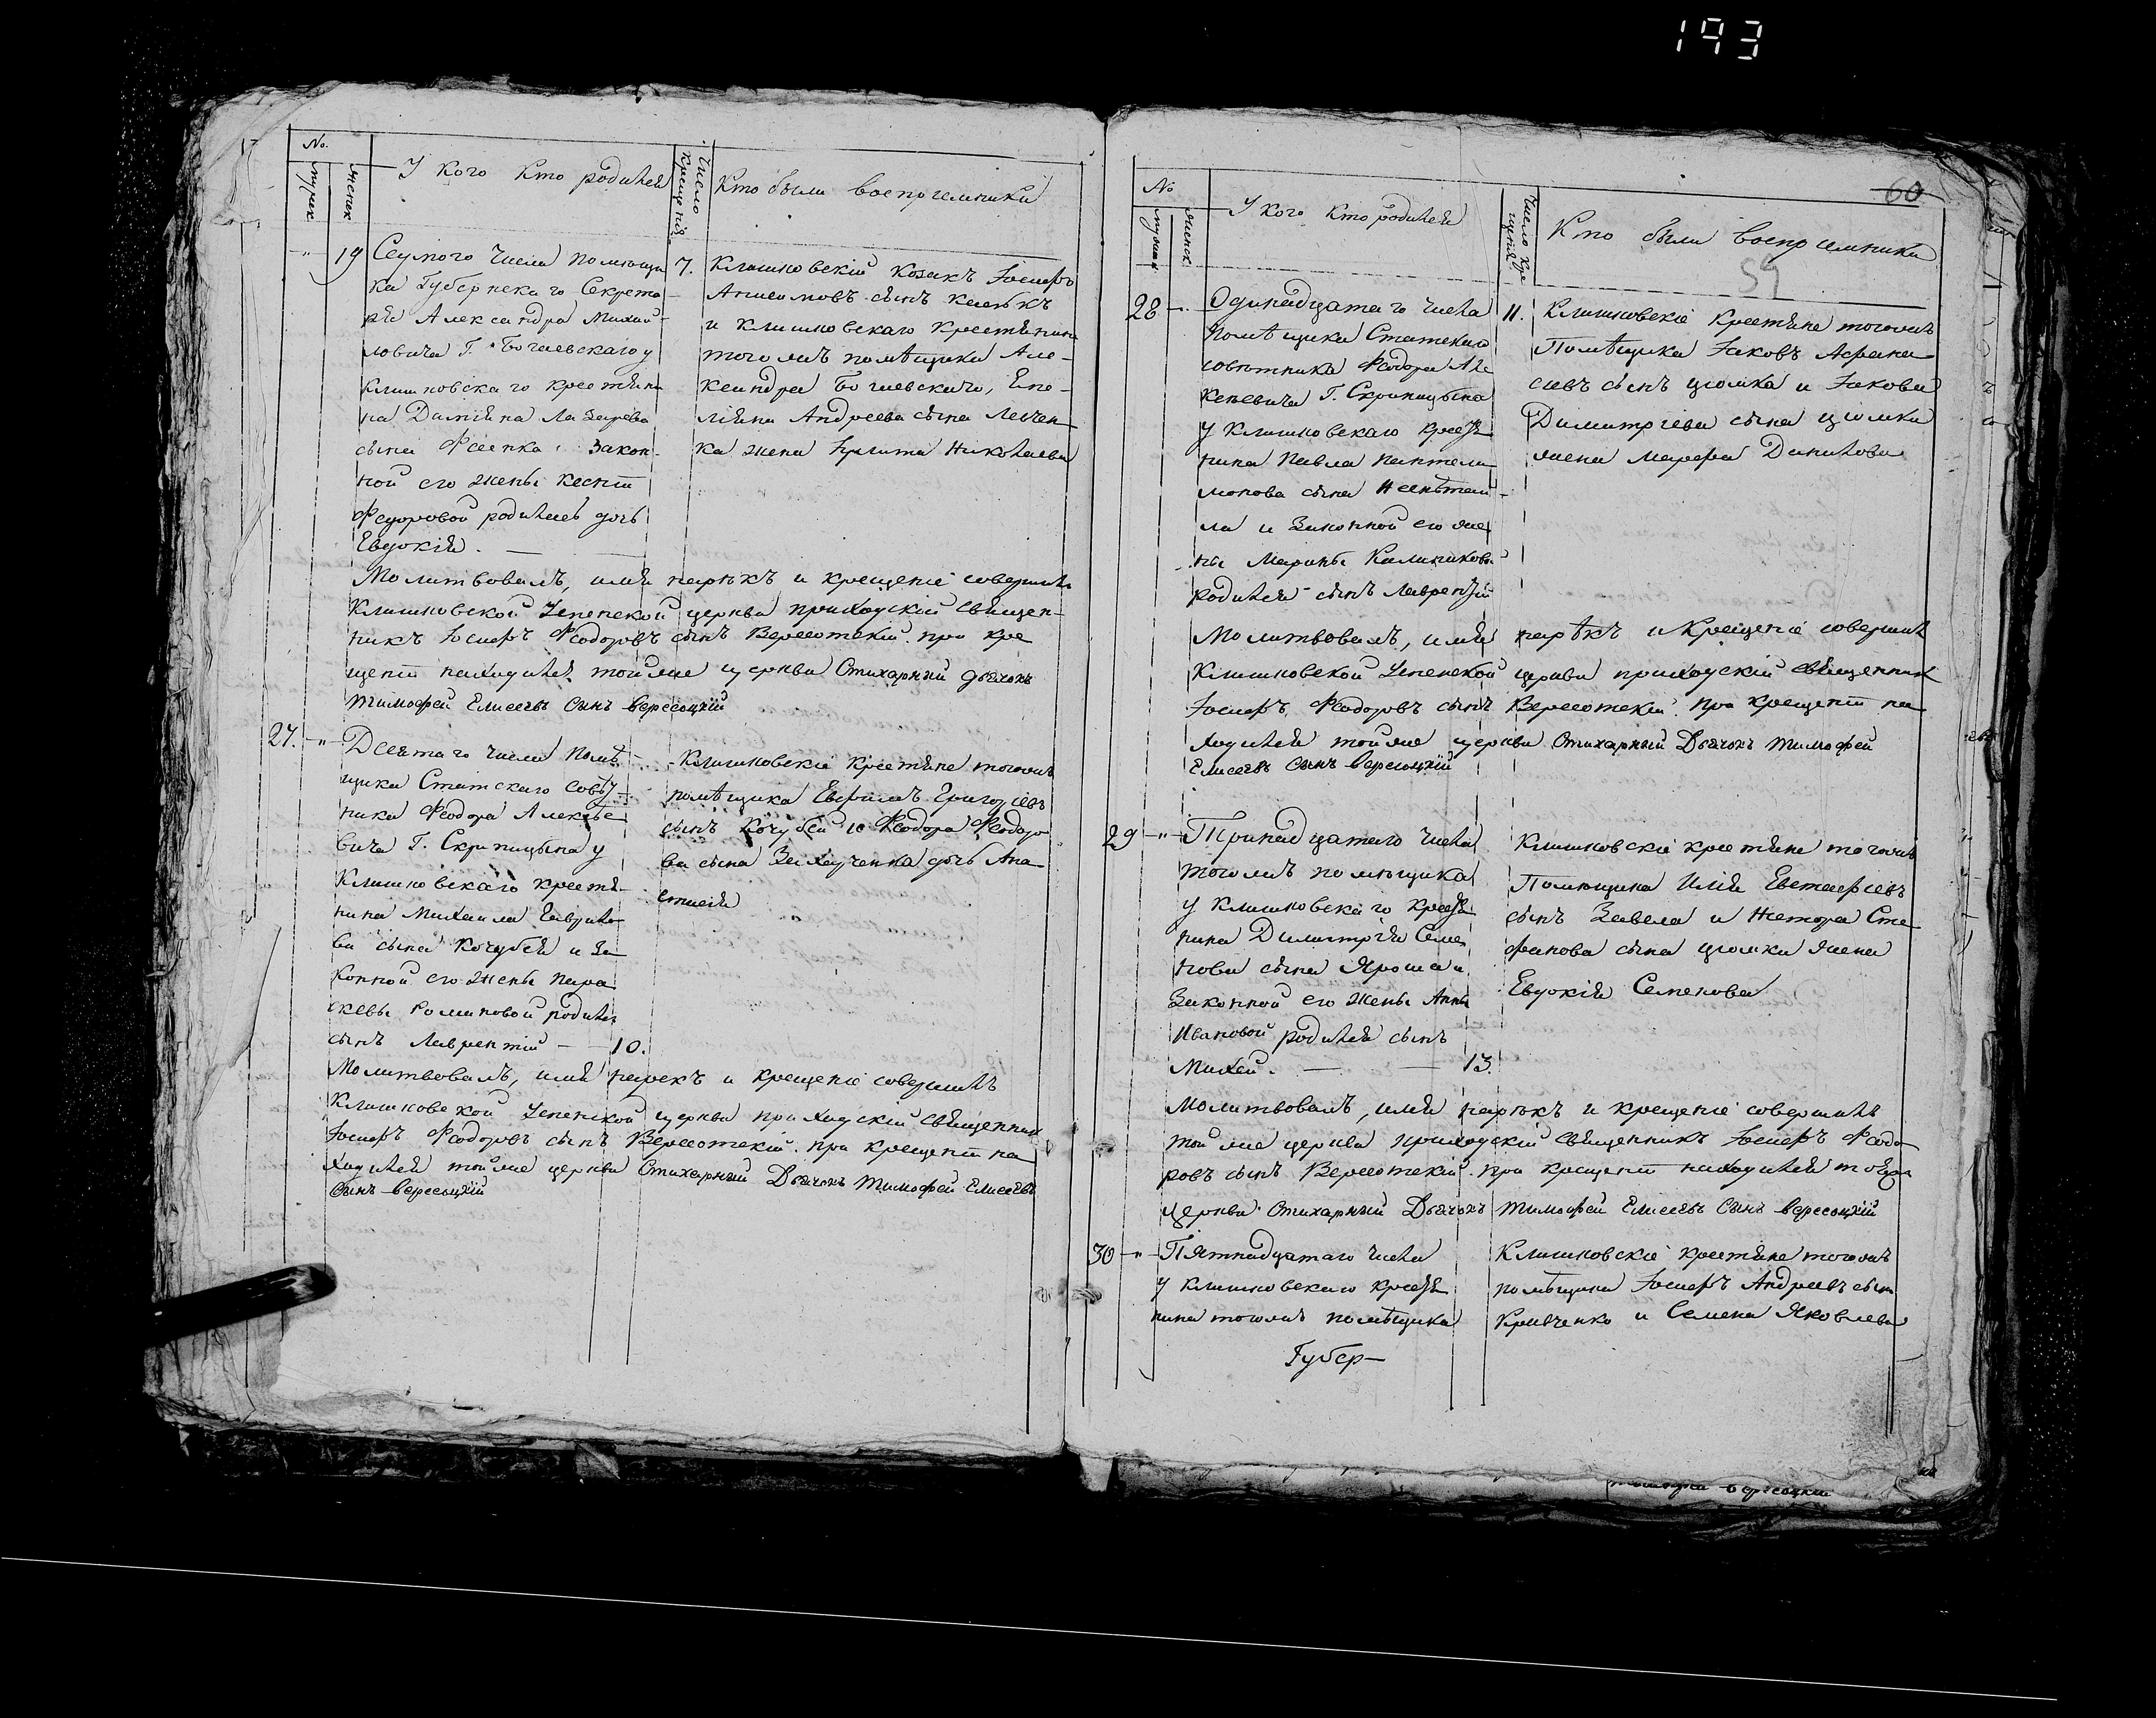 193
No.
мужеск
женск
У кого Кто родился
Число крещенія
Кто были воспріемники
19
Седмого числа помѣщи
ка Губернскаго Секрета
ря Александра Михай-
ловича Г. Богаевскаго у
Клишковскаго крестьяни
на Даміяна Лазарева
сына Фсенка и закон-
ной его жены
Федоровой родилась дочь
Евдокія.
7.
Клишковскій Козакъ Іосифъ
Анисимовъ сынъ
и Клишковскаго крестьянина
тогожъ помѣщика Але-
ксандра Богаевскаго, Еме-
ліяна Андреева сына Левчен
ка жена Ирина Николаева
Молитвовалъ, имя нарѣкъ и крещеніе совершилъ
Клишковской Успенской церкви приходскій Священ-
никъ Іосифъ Феодоровъ сынъ Вересотскій. при кре
щеніи находился тойже церкви Стихарный дьячокъ
Тимофей Елисеевъ Сынъ Вересоцкій
27.
Десятаго числа помѣ-
щика Статскаго Совѣт-
ника Феодора Алексѣе
вича Г. Скрипицына у
Клишковскаго крестья-
нина Михаила Гаврило
ва сына Кочубея и за
конной его жены Пара
скевы Романовой родился
сынъ Лаврентій — 10.
Клишковскіе крестьяне тогожъ
помѣщика Евфимъ Григорьевъ
сынъ Кочубей и Феодора Феодоро
ва сына Захарченка дочь Ана
стасія
Молитвовалъ, имя нарекъ и крещеніе совершилъ
Клишковской Успенской церкви приходскій Священникъ
Іосифъ Феодоровъ сынъ Вересотскій. при крещеніи на
ходился тойже церкви Стихарный Дьячокъ Тимофей Елисеевъ
Сынъ Вересоцкій
60
59
No
мужеск
женск
У кого Кто родился
Число крещенія
Кто были воспріемники
28
Одинадцатаго числа
помѣщика Статскаго
совѣтника Феодора Але
ксеевича Г. Скрипицына
у Клишковскаго крестья
нина Павла Пантели
монова сына
ла и Законной его же
ны Марины Калиниковой
родился сынъ Лаврентій
11.
Клишковскіе крестьяне тогожъ
Помѣщика Іаковъ Афана
сіевъ сынъ Цюмка и Іакова
Димитріева сына Цюмки
жена Марфа Данилова
Молитвовалъ, имя нарѣкъ и Крещеніе совершилъ
Клишковской Успенской церкви приходскій Священникъ
Іосифъ Феодоровъ сынъ Вересотскій. При крещеніи на
ходился тойже церкви Стихарный Дьячокъ Тимофей
Елисеевъ Сынъ Вересоцкій
29
Тринадцатаго числа
тогожъ помѣщика
у Клишковскаго крестья
нина Димитрія Семе
нова сына Яроша и
Законной его жены Анны
Ивановой родился сынъ
Михей. — 13.
Клишковскіе крестьяне тогожъ
Помѣщика Илія Евстафіевъ
сынъ Завела и Нестора Сте
фанова сына Цюмки жена
Евдокія Семенова
Молитвовалъ, имя нарѣкъ и крещеніе совершилъ
тойже церкви приходскій Священникъ Іосифъ Феодо
ровъ сынъ Вересотскій. при крещеніи находился тойже
церкви Стихарный Дьячокъ Тимофей Елисеевъ Сынъ Вересоцкій
30
Пятнадцатаго числа
у Клишковскаго крестья
нина тогожъ помѣщика
Губер-
Клишковскіе крестьяне тогожъ
помѣщика Іосифъ Андреевъ сынъ
Кривченко и Семена Яковлева
Тимофей Вересоцкій